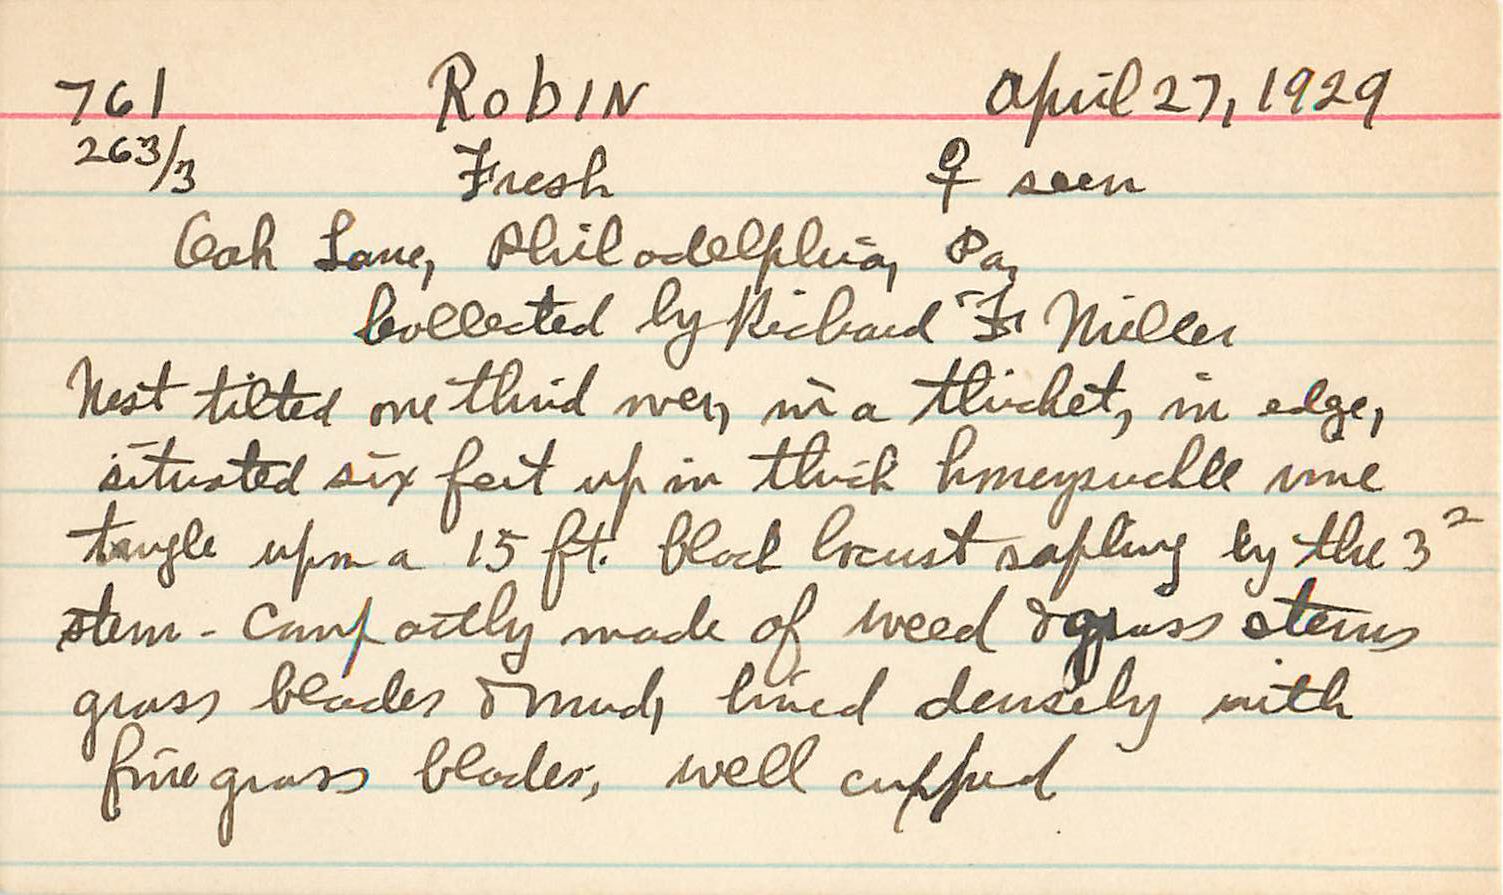 761 Robin April 27, 1929
263/3 Fresh ♀ seen
Oak Lane, Philadelphia, Pa,
Collected by Richard F. Miller
Nest tilted one third over, in a thicket, in edge,
situated six feet up in thick honeysuckle vine
tangle upon a 15 ft. black locust sapling by the 3"
stem - Compactly made of weed & grass stems
grass blades & mud, lined densely with
fine grass blades, well cupped